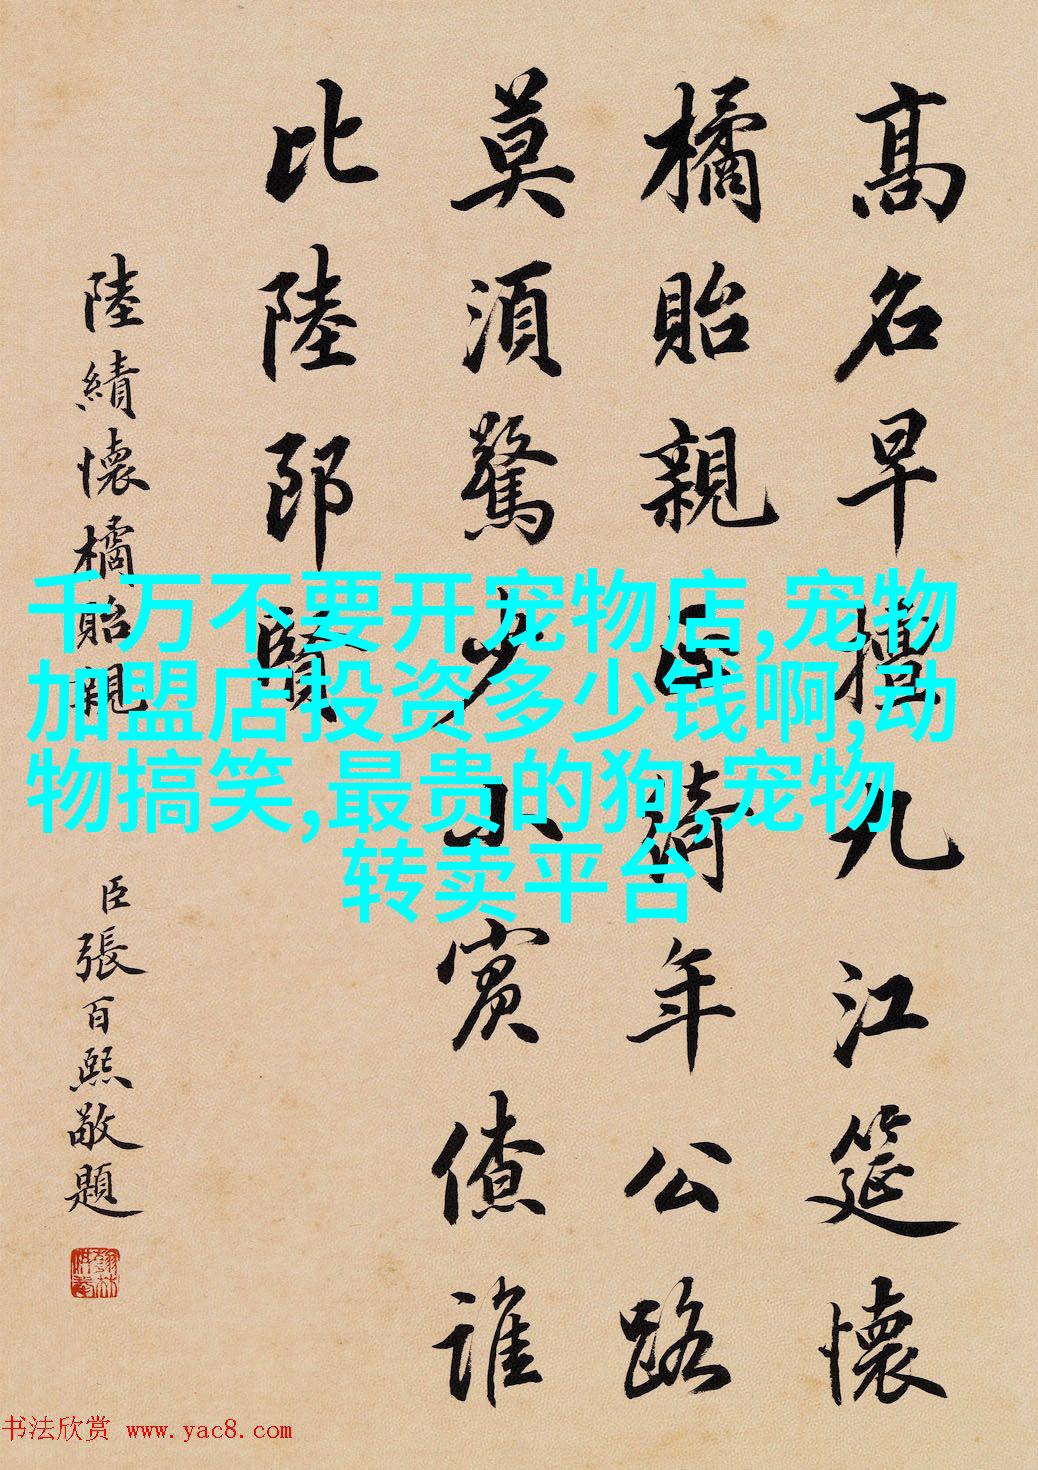 高名早擅九江筵懷
橘貽親綺年公路
莫須驚少小賓僚誰
比陸郎賢
陸績懷橘貽親
臣張百熙敬題
千万不要开宠物店,宠物
加盟店投资多少钱啊,动
物搞笑,最贵的狗,宠物
转卖平台
书法欣赏 www.yac8.com